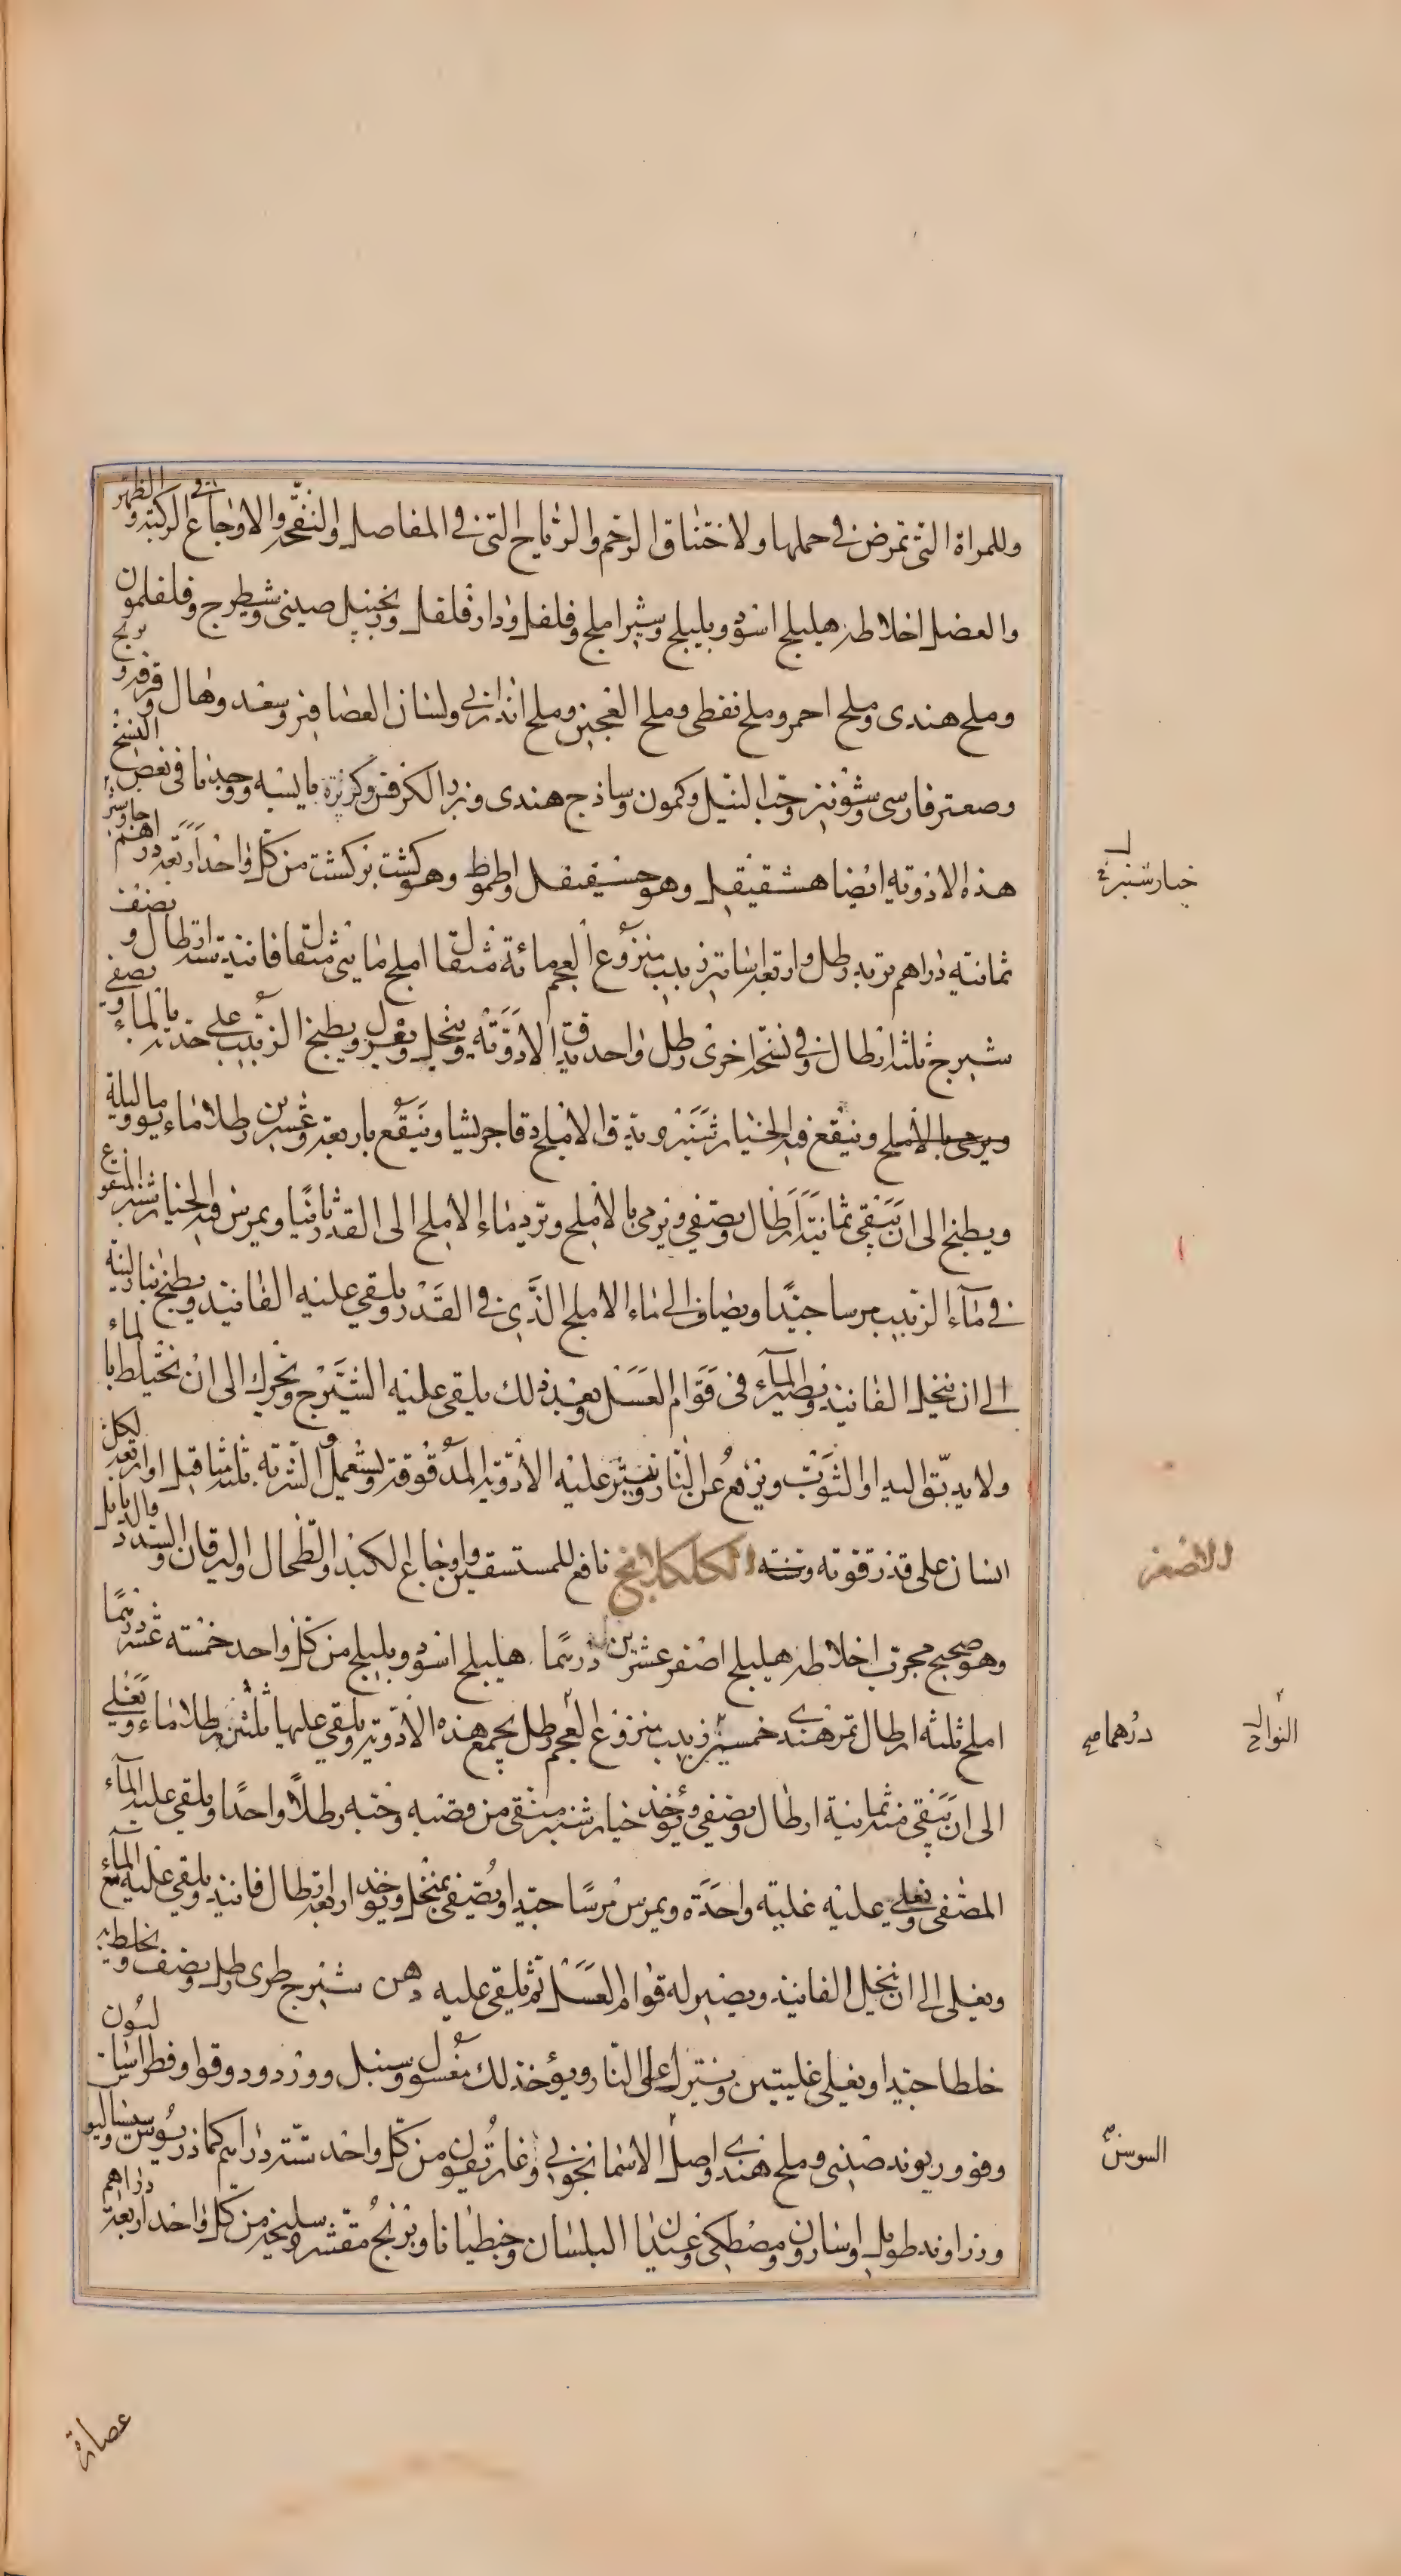 وللمراة التى تمرض فى حملها ولاختناق الرحم والرياح التى فى المفاصل والنفخه والاوجاع فى الركبة والظهر
والعضل اخلاطه هليلج اسود وبليلج وشير املج وفلفل ودارفلفل وزنجبيل صينى وشيطرج وفلفلمون
وملح هندى وملح احمر وملح نفطى وملح العجين وملح اندرانى ولسان العصافير وسعد وهال وقرفه وبرنج
وصعتر فارسى وشونيز وحب النيل وكمون وساذج هندى وبزر الكرفس وكزبرة يابسه ووجدنا فى بعض النسخ
هذه الادويه ايضا هشقيقل وهو حسقيقل واطموط وهو كشت بركشت من كل واحد اربعة دراهم جاوشير
ثمانيه دراهم تربد رطل واربعة اساتير زبيب منزوع العجم مائة مثقال املج مايتى مثقال فانيذ ستة ارطال ونصف
شيرج ثلثة ارطال وفى نسخه اخرى رطل واحد تدق الادوية وتنخل وتعزل ويطبخ الزبيب على حدته بالماء ويصفى
ويرمى بالاملج وينقع فيه الخيارشنبر ويدق الاملج دقا جريشا وينقع باربعة وعشرين رطلا ماء يوما وليلة
ويطبخ الى ان يبقى ثمانية ارطال ويصفى ويرمى بالاملج وترد ماء الاملج الى القدر ثانيا ويمرس فيه الخيارشنبر المنقوع
فى ماء الزبيب مرسا جيدا ويضاف الى ماء الاملج الذى فى القدر ويلقى عليه الفانيذ ويطبخ بنار لينة
الى ان ينحل الفانيذ ويصير الماء فى قوام العسل وبعد ذلك يلقى عليه الشيرج ويحرك الى ان يختلط بالماء
ولا يدبق اليد او الثوب وينزع عن النار وينثر عليه الادوية المدقوقة ويستعمل الشربه ثلثة مثاقيل او اربعة لكل
انسان على قدر قوته وسنه الكلكلانج نافع للمستسقين واوجاع الكبد والطحال واليرقان والسدد
وهو صحيح مجرب اخلاطه هليلج اصفر عشرين درهما هليلج اسود وبليلج من كل واحد خمسه عشر درهما
املج ثلثه ارطال تمر هندى خمسين زبيب منزوع العجم رطل يجمع هذه الادوية ويلقى عليها ثلثين رطلا ماء ويغلى
الى ان يبقى منه ثمانية ارطال ويصفى ويؤخذ خيارشنبر منقى من قصبه وحبه رطلا واحدا ويلقى عليه الماء
المصفى ويغلى عليه غلية واحدة ويمرس مرسا جيدا ويصفى بمنخل ويؤخذ اربعة ارطال فانيذ ويلقى عليه مع الماء
ويغلى الى ان ينحل الفانيذ ويصير له قوام العسل ثم يلقى عليه دهن شيرج طرى رطل ونصف ويخلط به
خلطا جيدا ويغلى غليتين وينزل على النار ويؤخذ لك مغسول وسنبل وورد ودوقوا وفطراساليون
وفو وريوند صينى وملح هندى واصل الاسمانجونى وغاريقون من كل واحد ستة دراهم كماذريوس وسيساليوس
وزراوند طويل واسارون ومصطكى وعيدان البلسان وجنطيانا وبرنج مقشر وسليخه من كل واحد اربعة دراهم
خيارشنبر
درهما صح
السوسن
عصارة